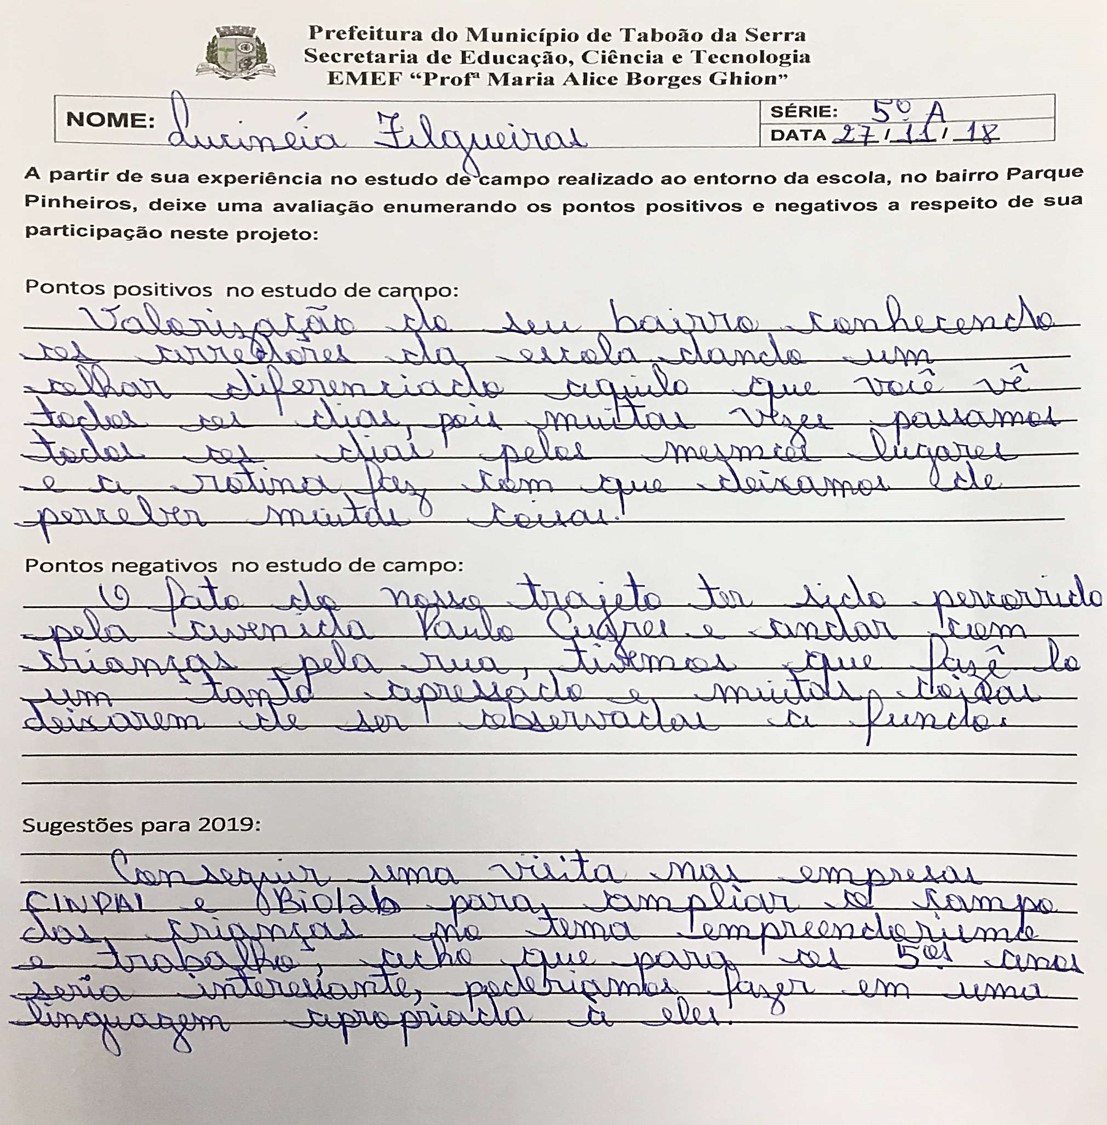 Prefeitura do Município de Taboão da Serra
Secretaria de Educação, Ciência e Tecnologia
EMEF “Profª Maria Alice Borges Ghion”
NOME: Lucinéia Filgueiras
SÉRIE: 5º A
DATA 27/11/18
A partir de sua experiência no estudo de campo realizado ao entorno da escola, no bairro Parque
Pinheiros, deixe uma avaliação enumerando os pontos positivos e negativos a respeito de sua
participação neste projeto:
Pontos positivos no estudo de campo:
Valorização do seu bairro, conhecendo
os arredores da escola, dando um
olhar diferenciado aquilo que você vê
todos os dias, pois muitas vezes passamos
todos os dias pelos mesmos lugares
e a rotina faz com que deixamos de
perceber muitas coisas!
Pontos negativos no estudo de campo:
O fato do nosso trajeto ter sido percorrido
pela avenida Paulo e andar com
crianças pela rua, tivemos que fazê lo
um tanto apressado e muitas coisas
deixarem de ser observadas a fundo.
Sugestões para 2019:
Conseguir uma visita nas empresas
CINPAL e Biolab para ampliar o campo
das crianças no tema "empreenderismo
e trabalho", acho que para os 5ºs anos
seria interessante, poderíamos fazer em uma
linguagem apropriada à eles!